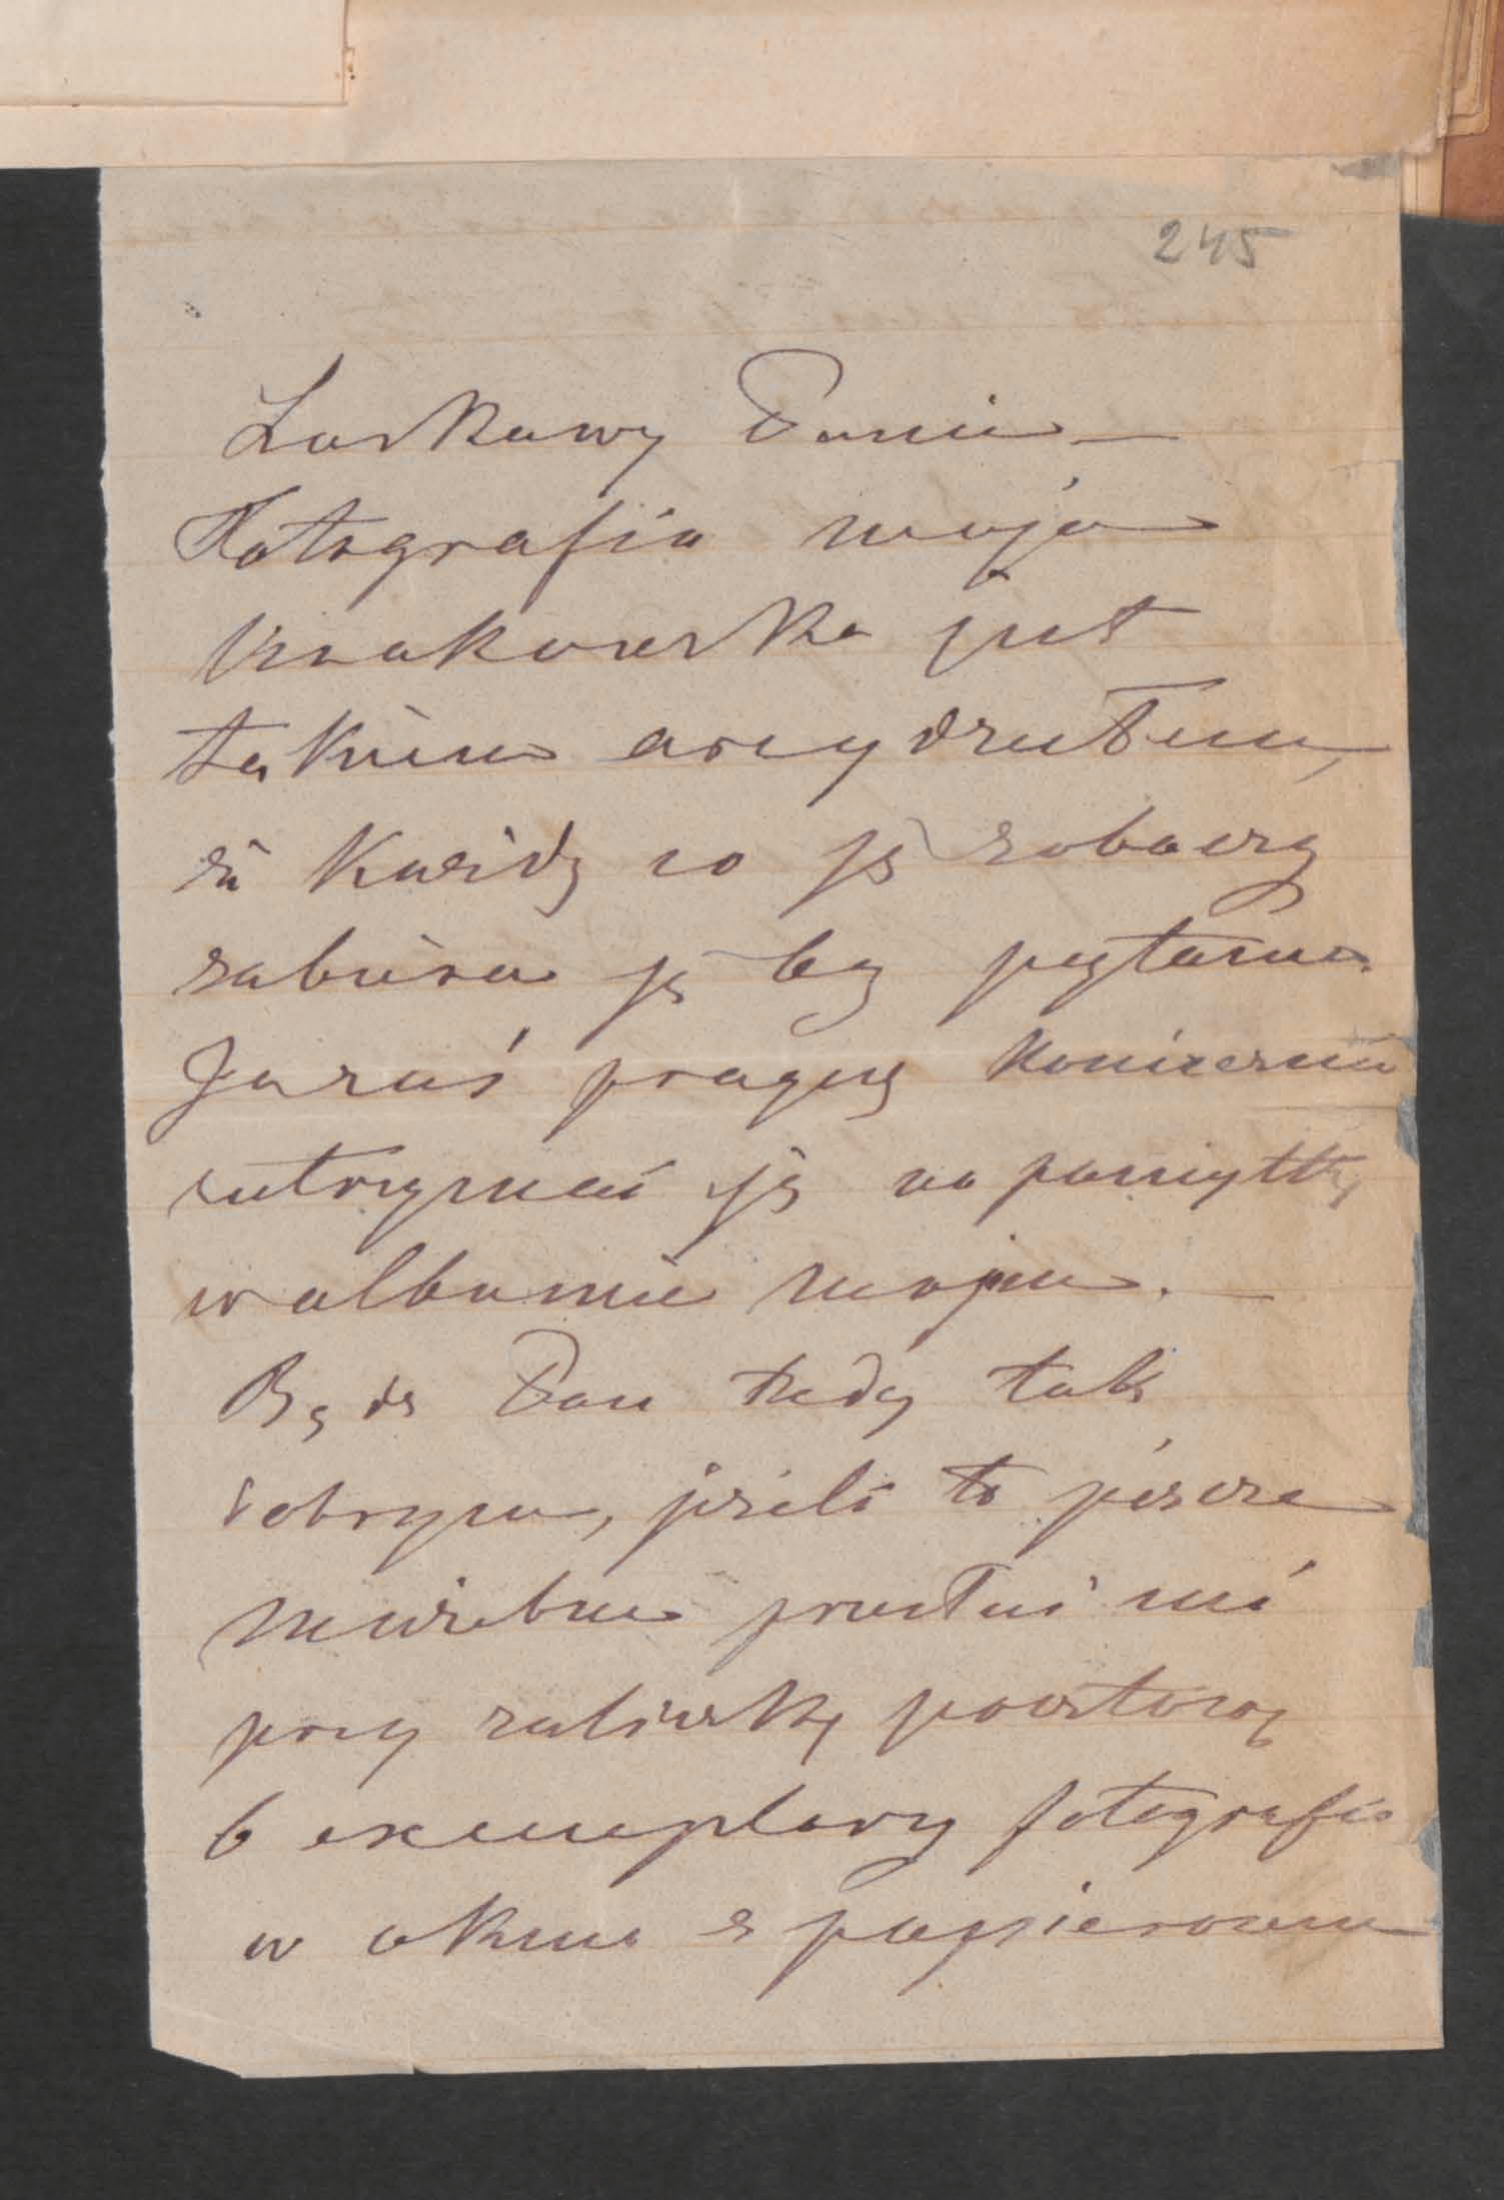 245
Łaskawy Panie —
Fotografia moja
krakowska jest
takiem arcydziełem,
że każdy co ją zobaczy
zabiera ją bez pytania.
Jaruś pragnę koniecznie
zatrzymać ją na pamiątkę
w albumie mojem. —
Bądź Pan tedy tak
dobrym, jeżeli to jeszcze
możebne przesłać mi
przy zaliczką pocztową
6 exemplarzy fotografii
w oknie z papierosem